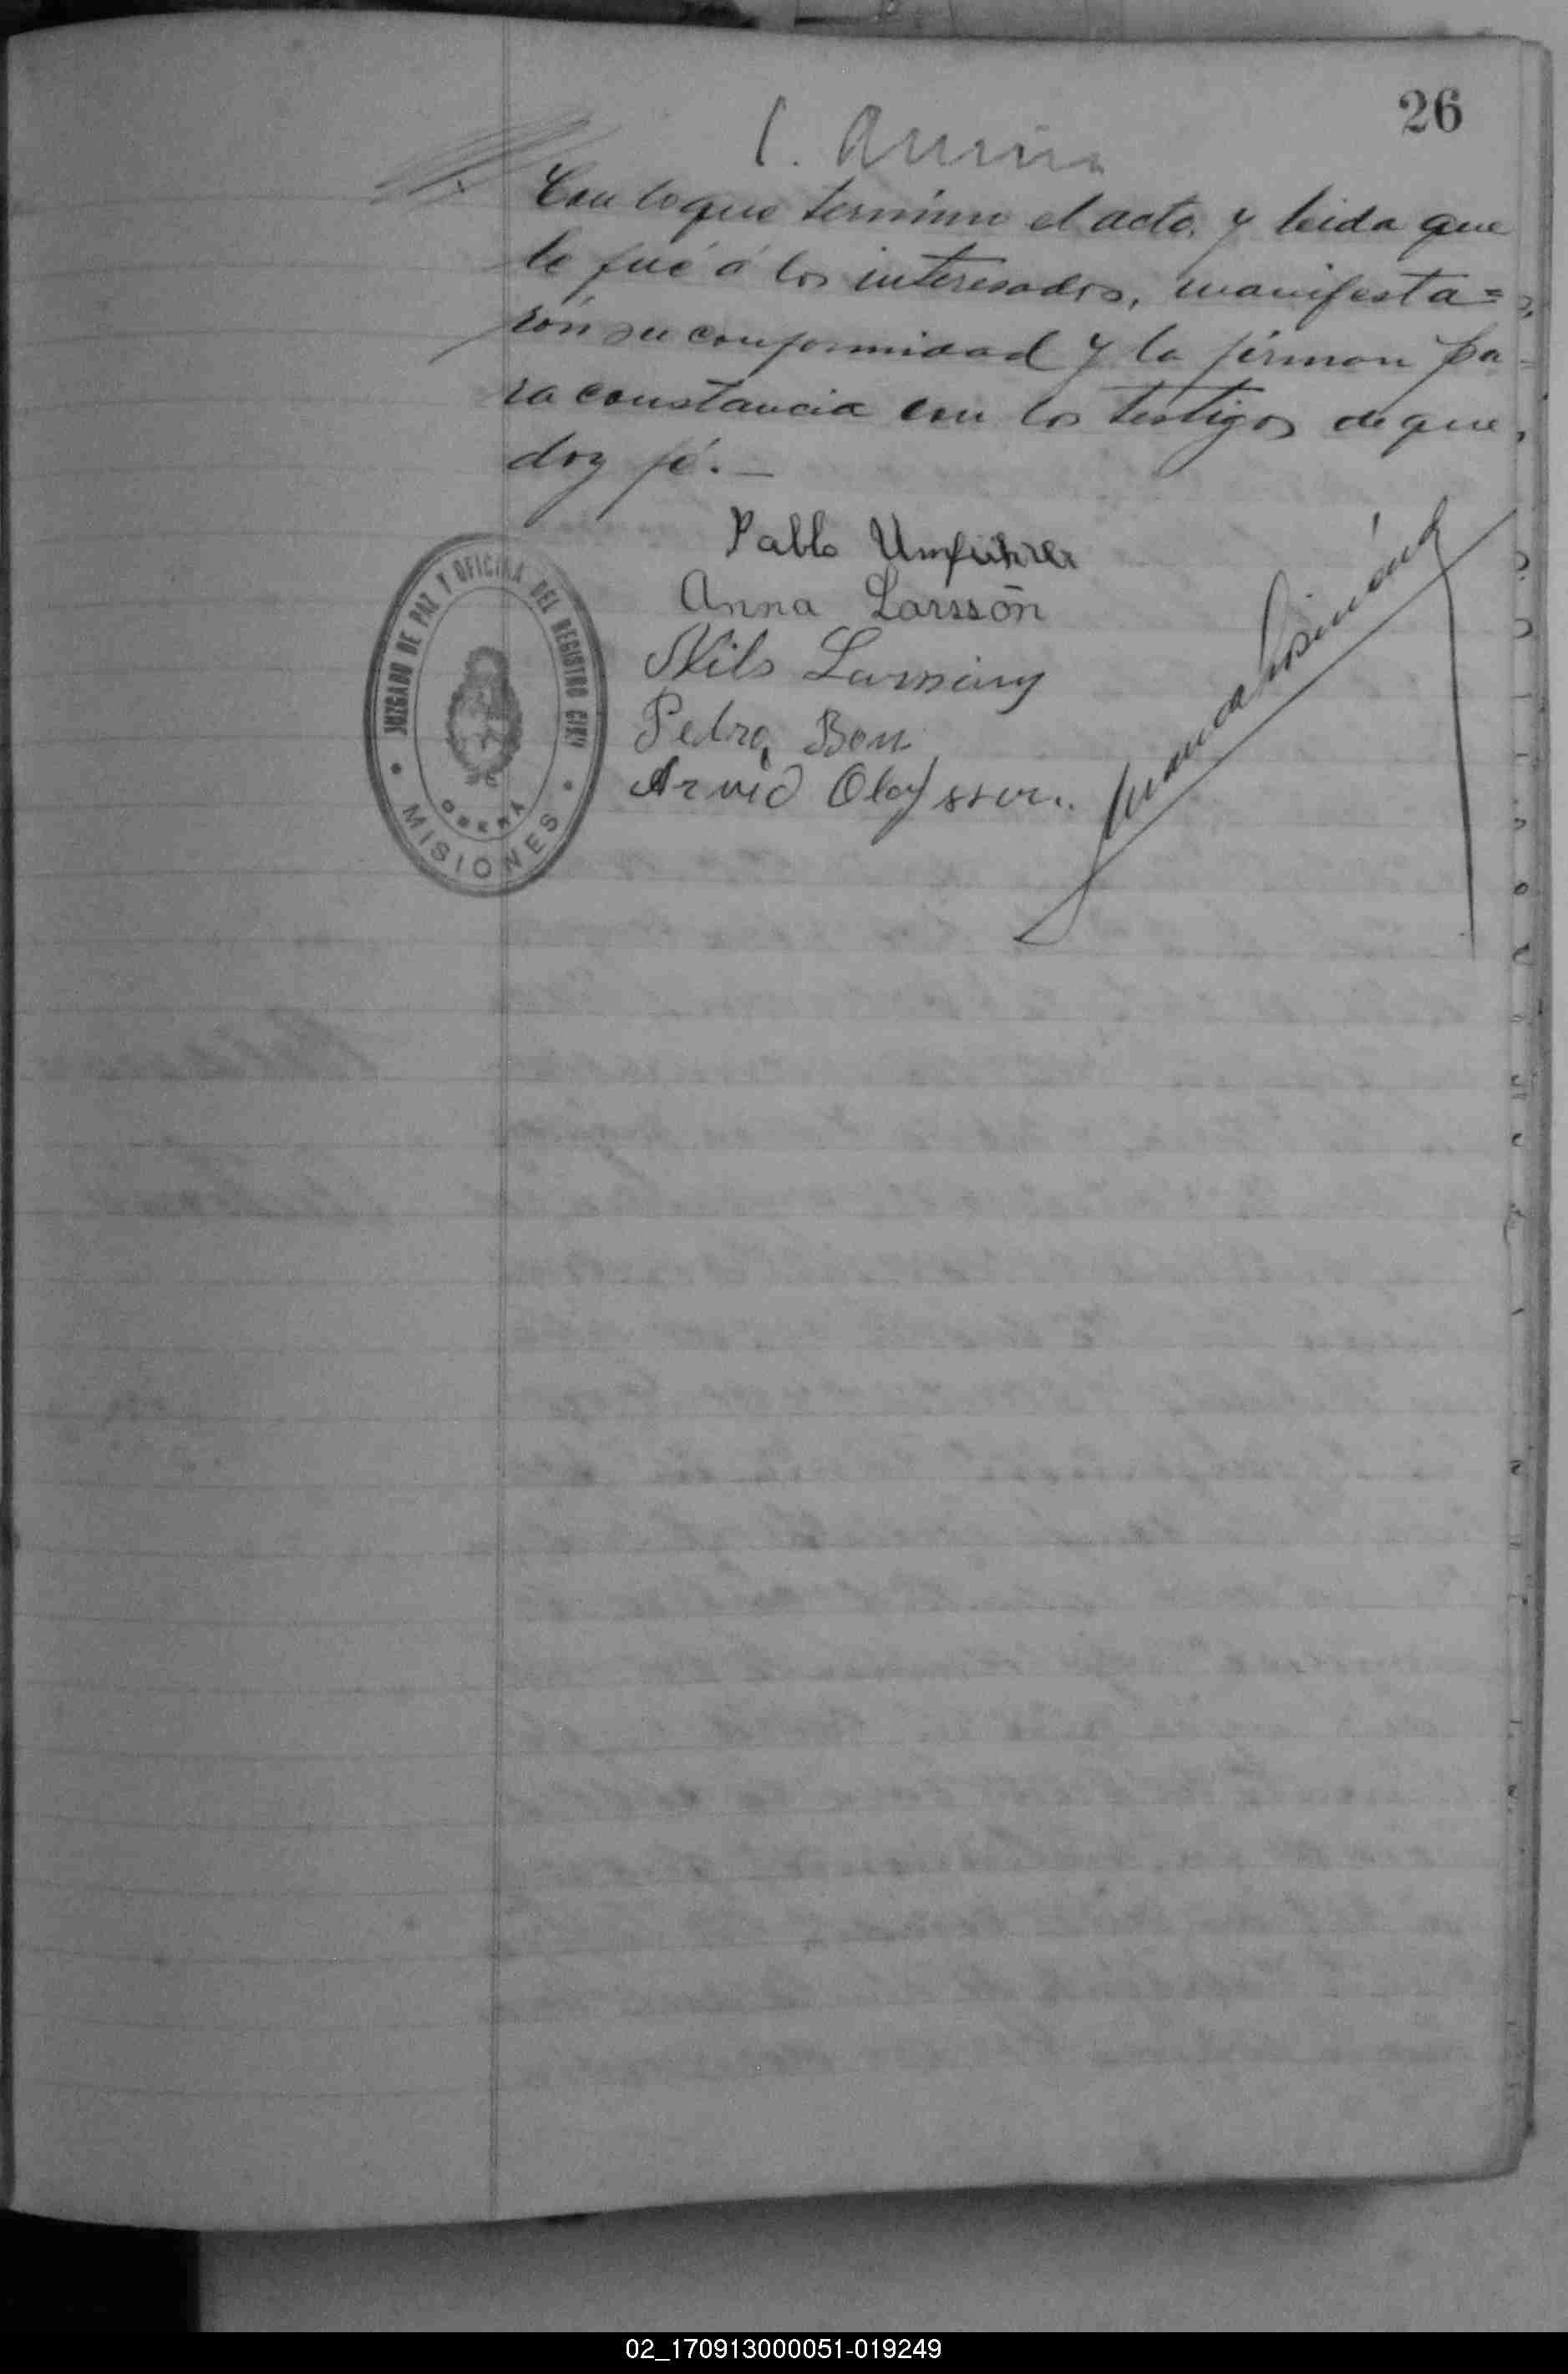 26
Con lo que termino el acto, y leida que
le fué á los interesados, manifesta=
rón su conformidad y la firman pa
ra constancia con los testigos de que,
doy fé.—
Pablo
Anna Larssón
Nils
Pedro
Arvid Olofsson.
JUZGADO DE PAZ Y OFICINA DEL REGISTRO CIVIL
OBERÁ
MISIONES
02_170913000051-019249